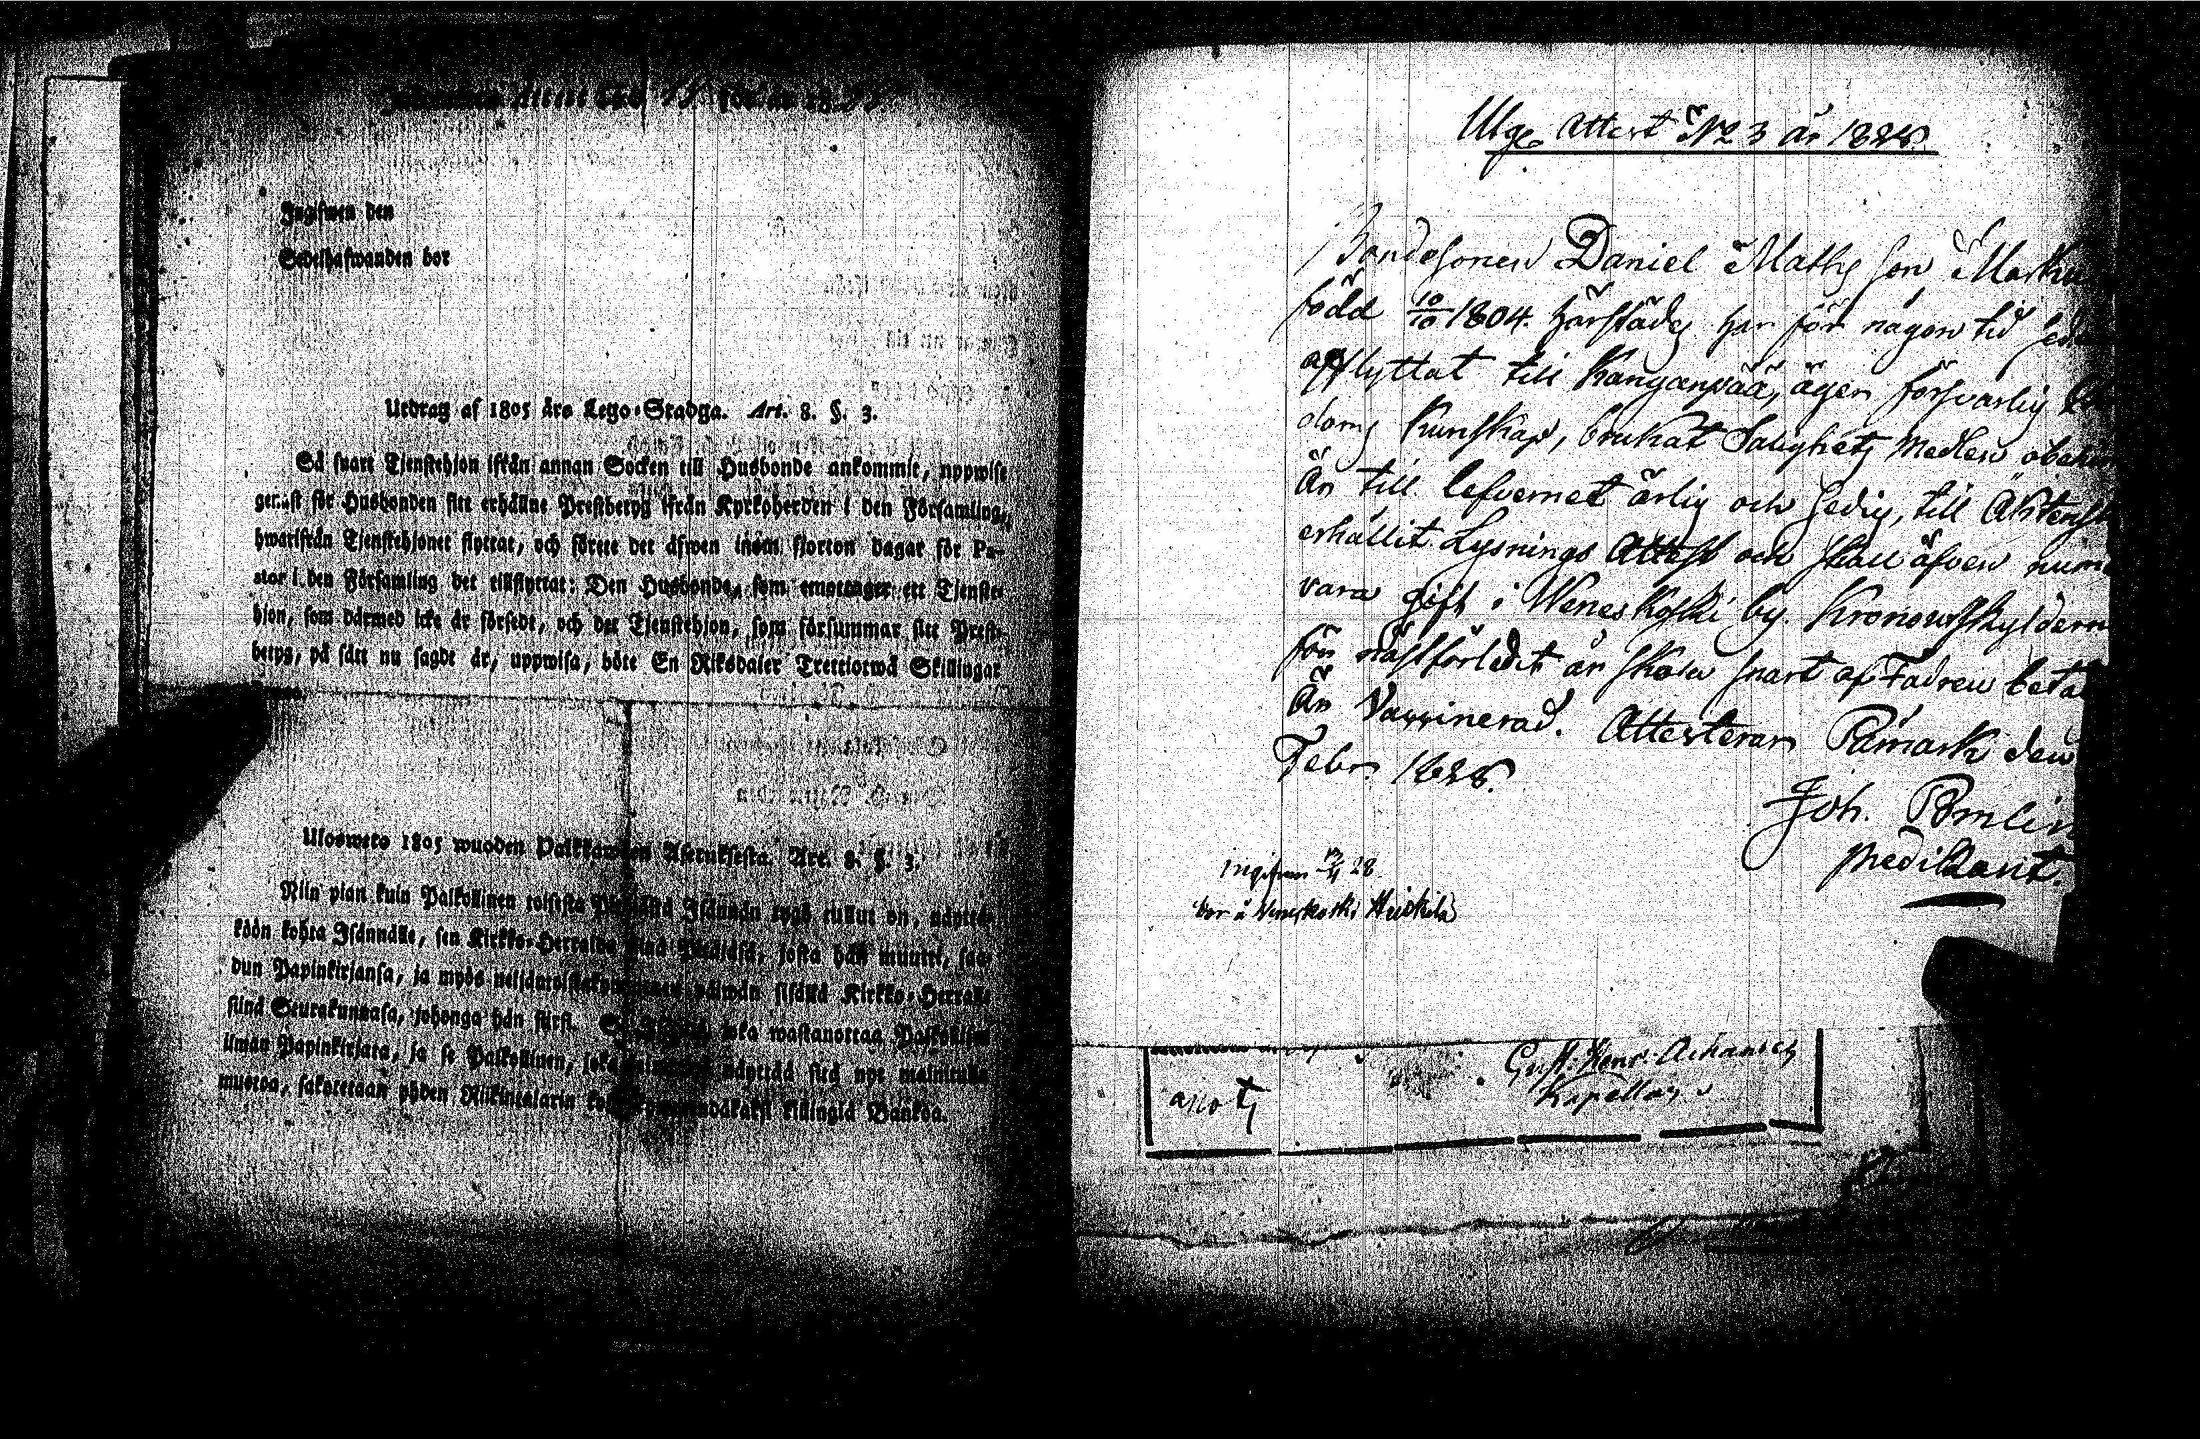 Attest No 18 för år 1828
Ingifwen den
Sedelhafwanden bor
Utdrag af 1805 års Lego-Stadga. Art. 8. §. 3.
Så snart Tjenstehjon ifrån annan Socken till Husbonde ankommit, uppwise
genast för Husbonden sitt erhållne Prestbetyg ifrån Kyrkoherden i den Församling,
hwarifrån Tjenstehjonet flyttat, och förete det äfwen inom fjorton dagar för Pa-
stor i den Församling det tillflyttat: Den Husbonde, som emottager ett Tjenste-
hjon, som därmed icke är försedt, och det Tjenstehjon, som försummar sitt Prest-
betyg, på sätt nu sagdt är, uppwisa, böte En Riksdaler Trettiotwå Skillingar
Ulosweto 1805 wuoden Palkkawäen Asetuksesta. Art. 8. §. 3.
Niin pian kuin Palkollinen toisesta Isännän tygö tullut on, näyttä-
köön kohta Isännälle, sen Kirkko-Herralta siinä Pitäjäsä, josta hän muutti, saa-
dun Papinkirjansa, ja myös neljäntoistakymmenen päiwän sisällä Kirkko-Herralle
siinä Seurakunnasa, johonga hän siirsi. Se joka wastanottaa Palkollisen
ilman Papinkirjata, ja se Palkollinen, joka näyttää sitä nyt mainitulla
muotoa, sakotetaan yhden Riikintalarin killingiä Bankoa.
Utge Attest No 3 år 1828.
Bondesonen Daniel Maths son
född 10/10 1804. härstädes har för någon tid
afflyttat till Kanganpää, äger försvarlig
doms Kunskap, brukat Salighets Medlen
Är till lefvernet ärlig och sedig, till
erhållit Lysnings Attest och skall äfven
vara gift i Weneskoski by. Kronoutskylderna
för nästförledit år skola snart af Fadren
Är Vaccinerad. Attesterar Påmark den
Febr. 1828.
Joh. Bmlin
Predikant.
ingifven 28
bor å Weneskoski Heickilä
Gust. Henr.
Kapellan